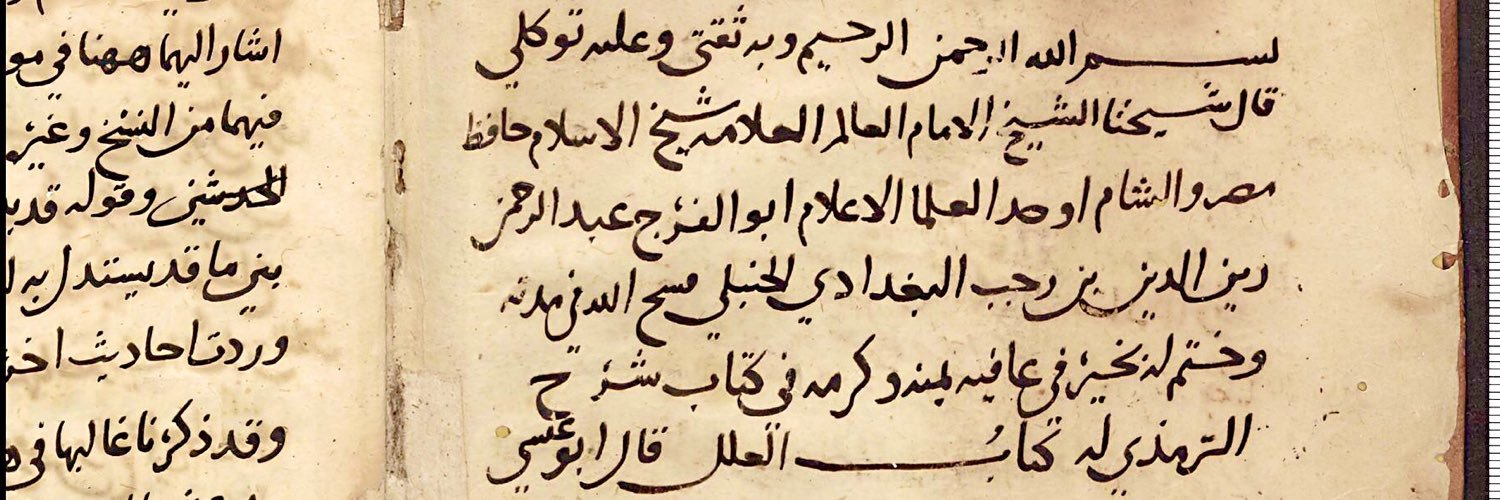 بسم الله الرحمن الرحيم وبه ثقتي وعليه توكلي
قال شيخنا الشيخ الامام العالم العلامه شيخ الاسلام حافظ
مصر والشام اوحد العلما الاعلام ابو الفرج عبد الرحمن
زين الدين بن رجب البغدادي الحنبلي فسح الله في مدته
وختم له بخير في عافيه بمنه وكرمه في كتاب شرح
الترمذي له كتاب العلل قال ابو عيسي
اشار اليهما ههنا في
فيهما من النسخ وغير
الحديثين وقوله قد
بين ما قد يستدل به
وردت احاديث
وقد ذكرنا غالبها في